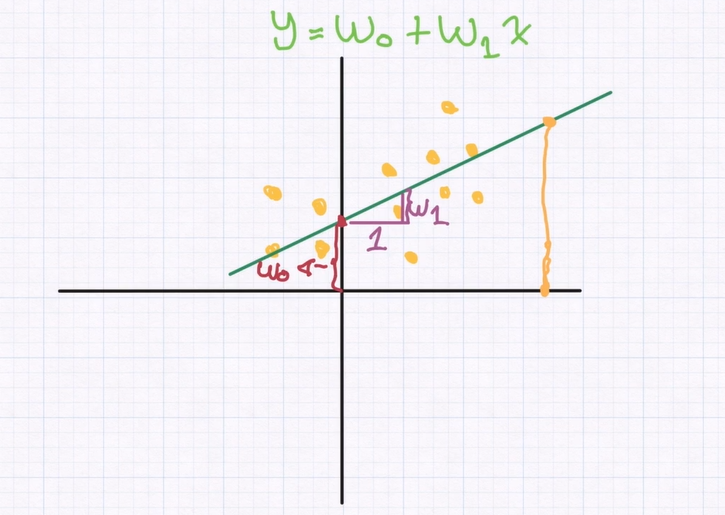 y = w₀ + w₁ x
w₁
1
w₀